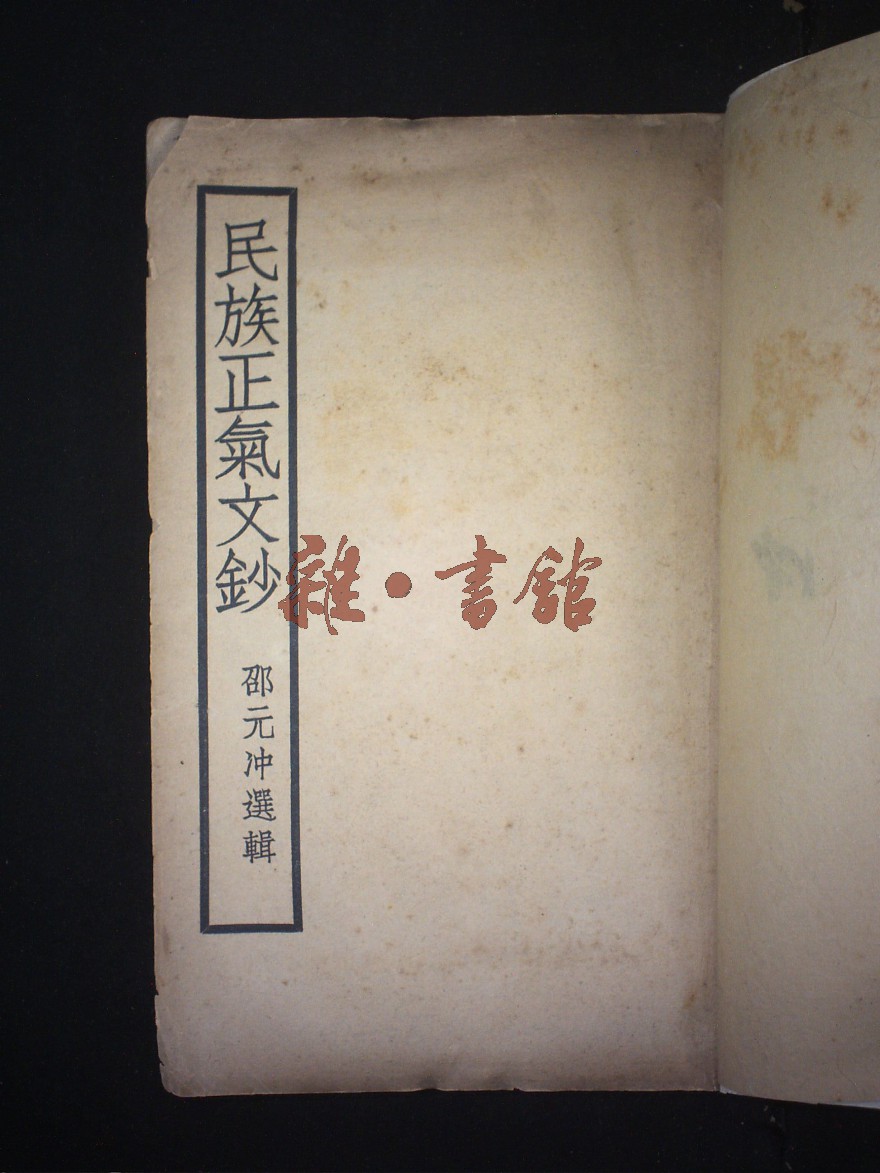 民族正氣文鈔
邵元冲選輯
雜·書館